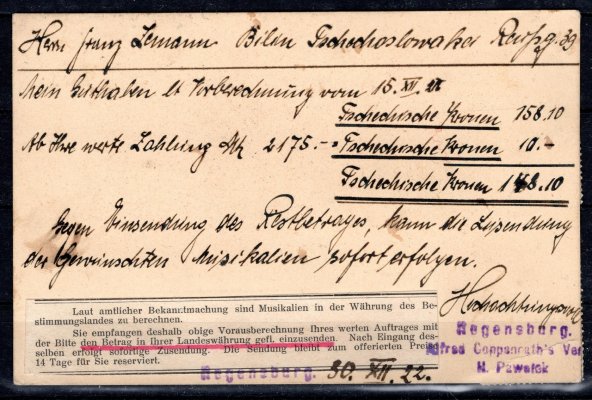 Herrn Franz Lemann Bilin Tschechoslowakei
Mein Guthaben lt Vorberechnung vom 15. XII. 22
Tschechische Kronen 158.10
Ab Ihre werte Zahlung Mk 2175.- = Tschechische Kronen 10.-
Tschechische Kronen 148.10
Gegen Einsendung des Restbetrages, kann die Zusendung
der Gewünschten Musikalien sofort erfolgen.
Hochachtungsvoll
Laut amtlicher Bekanntmachung sind Musikalien in der Währung des Be-
stimmungslandes zu berechnen.
Sie empfangen deshalb obige Vorausberechnung Ihres werten Auftrages mit
der Bitte den Betrag in Ihrer Landeswährung gefl. einzusenden. Nach Eingang des-
selben erfolgt sofortige Zusendung. Die Sendung bleibt zum offerierten Preise
14 Tage für Sie reserviert.
Regensburg.
Alfred Coppenrath's Ver
H. Pawelek
Regensburg. 30. XII. 22.